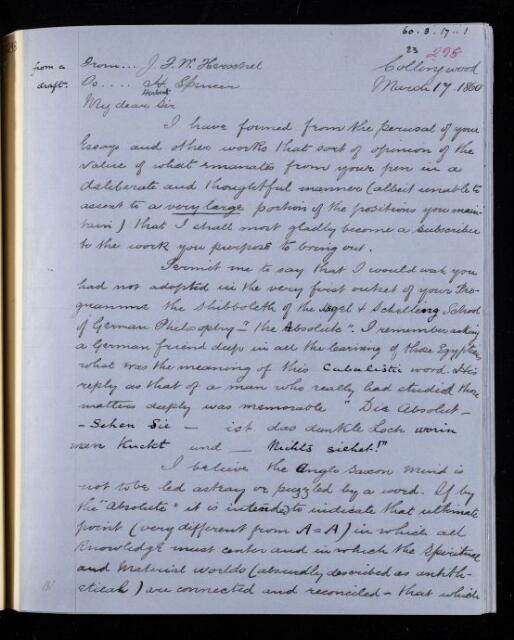 60 . 3 . 17 .. 1
23 298
from a From... J. F. W. Herschel Collingwood
draft. To.... H. Spencer March 17 1860
Herbert
My dear Sir
I have formed from the perusal of your
Essays and other works that sort of opinion of the
value of what emanates from your pen in a
deliberate and thoughtful manner (albeit unable to
assent to a very large portion of the positions you main-
tain) that I shall most gladly become a subscriber
to the work you purpose to bring out.
Permit me to say that I would wish you
had not adopted in the very first outset of your Pro-
gramme the shibboleth of the Hegel & Schelling School
of German Philosophy "the Absolute". I remember asking
a German friend deep in all the learning of those Egyptians
what was the meaning of this Cabalistic word. His
reply as that of a man who really had studied those
matters deeply was memorable "Die Absolut-
- Sehen Sie - ist das dunkle Loch worin
man kuckt und - Nichts siehet!"
I believe the Anglo Saxon mind is
not to be led astray or puzzled by a word. If by
the "Absolute" it is intended to indicate that ultimate
point (very different from A = A) in which all
knowledge must center and in which the Spiritual
and Material worlds (absurdly described as antith-
etical) are connected and reconciled - that which